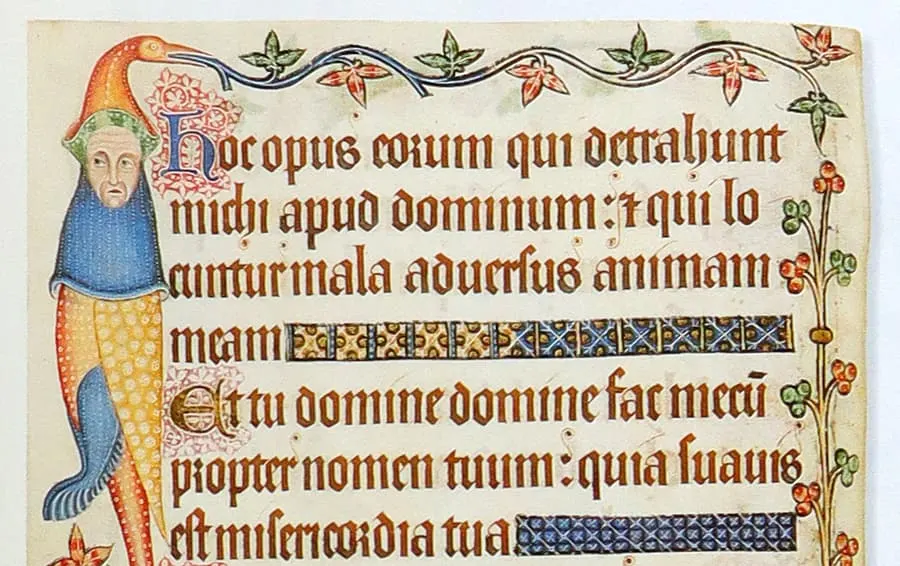 Hoc opus eorum qui detrahunt
michi apud dominum : ⁊ qui lo
cuntur mala aduersus animam
meam
Et tu domine domine fac mecū
propter nomen tuum : quia suauis
est misericordia tua